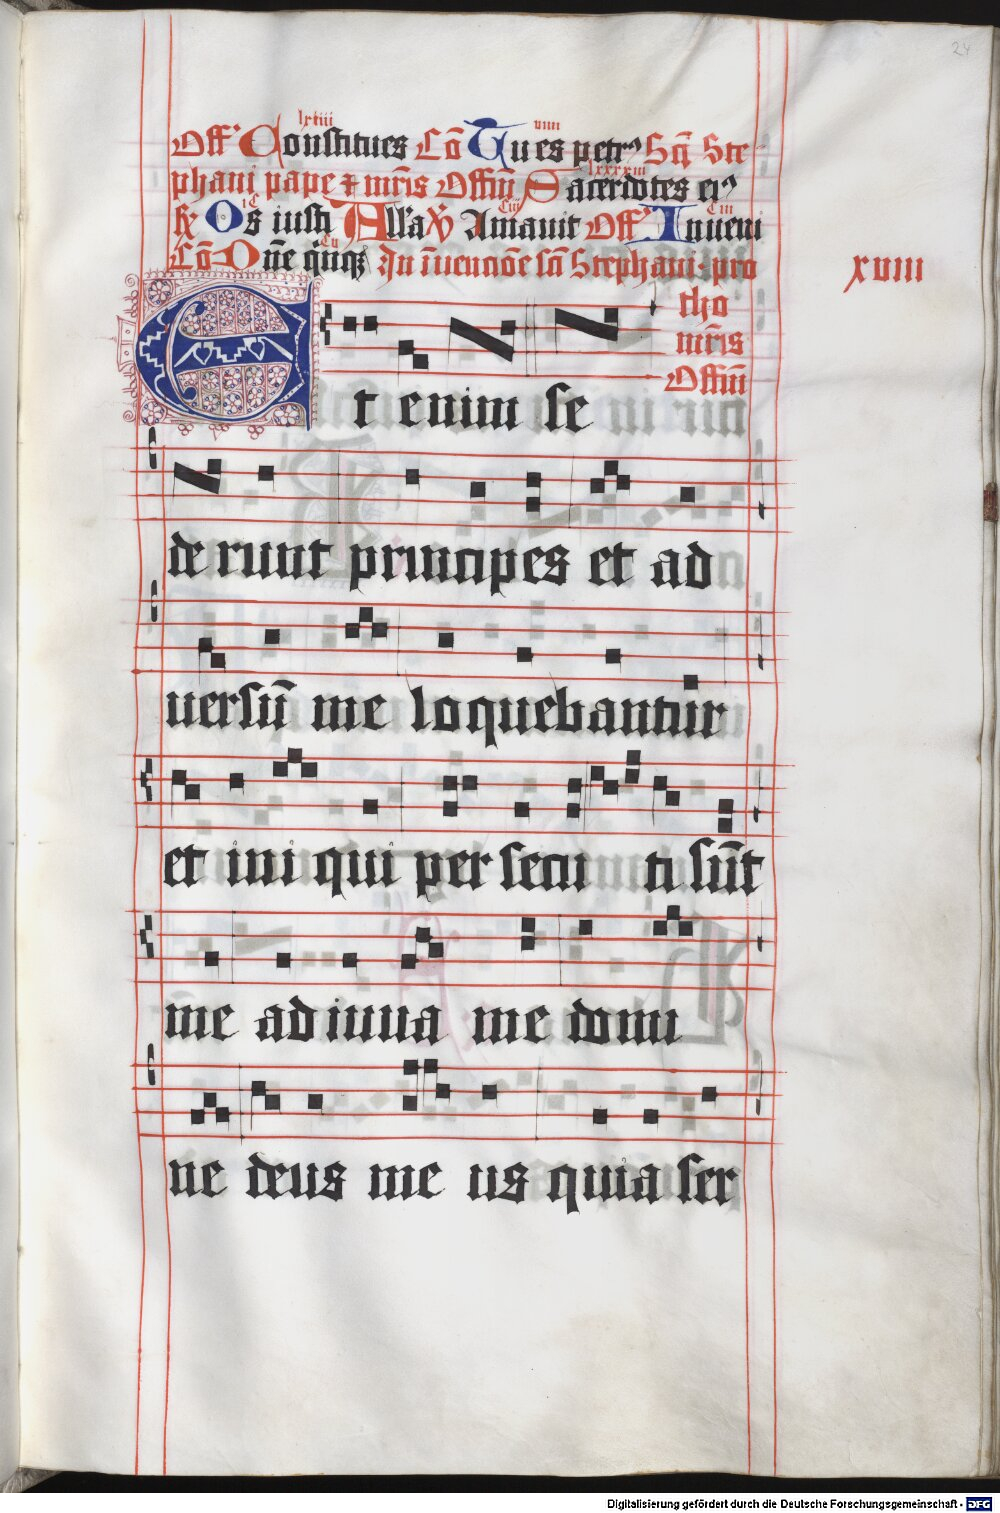 24
lxiiii viiii
Off' Constitues Cō Tu es petrꝰ Scī Ste
lxxxxiii
phani pape ⁊ mr̄is Offiū Sacerdotes eiꝰ
iC Ciij Ciii
Os iusti Alla Amauit Off' Inueni
Cu
Cō Dn̄e qnqꝫ In īuencōe scī Stephani pro
xviii
tho
mr̄is
Offiū
Et enim se
derunt principes et ad
uersū me loquebantur
et iniqui persecuti sūt
me adiuua me domi
ne deus meus quia ser
Digitalisierung gefördert durch die Deutsche Forschungsgemeinschaft - DFG